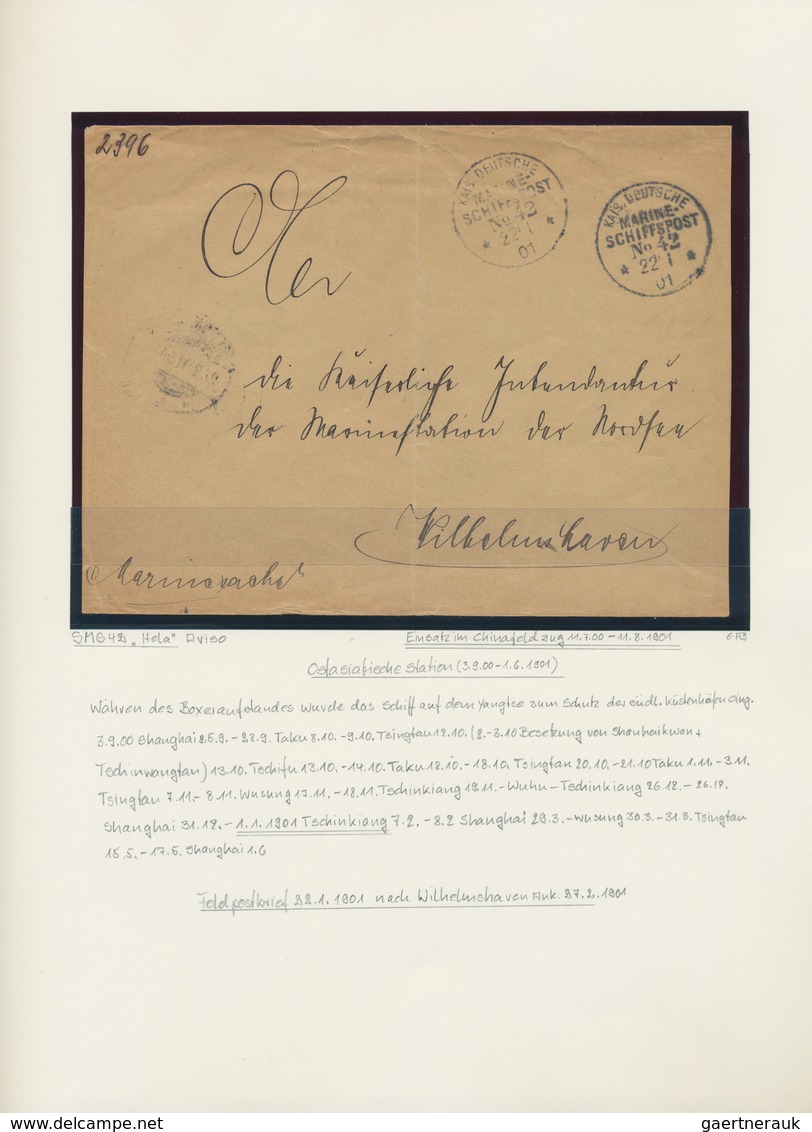 2396
KAIS. DEUTSCHE
MARINE-
SCHIFFSPOST
No 42
22 1
01
KAIS. DEUTSCHE
MARINE-
SCHIFFSPOST
No 42
22 1
01
An
die Kaiserliche Intendantur
der Marinestation der Nordsee
Wilhelmshaven
Marinesache
SMS 42 „Hela" Aviso
Einsatz im Chinafeldzug 11.7.00 - 11.8.1901
Ostasiatische Station (3.9.00 - 1.6.1901)
Währen des Boxeraufstandes wurde das Schiff auf dem Yangtse zum Schutz der südl. Küstenhäfen eing.
3.9.00 Shanghai 25.9. - 28.9. Taku 8.10. - 9.10. Tsingtau 12.10. (2. - 3.10 Besetzung von Shanhaikwan +
Tschinwangtau) 13.10. Tschifu 13.10. - 14.10. Taku 18.10. - 18.10. Tsingtau 20.10. - 21.10 Taku 1.11. - 3.11.
Tsingtau 7.11. - 8.11. Wusung 17.11. - 18.11. Tschinkiang 19.11. - Wuhu - Tschinkiang 26.12. - 26.12.
Shanghai 31.12. - 1.1.1901 Tschinkiang 7.2. - 8.2 Shanghai 29.3. - Wusung 30.3. - 31.3. Tsingtau
15.5. - 17.5. Shanghai 1.6
Feldpostbrief 22.1.1901 nach Wilhelmshaven Ank. 27.2.1901
gaertnerauk